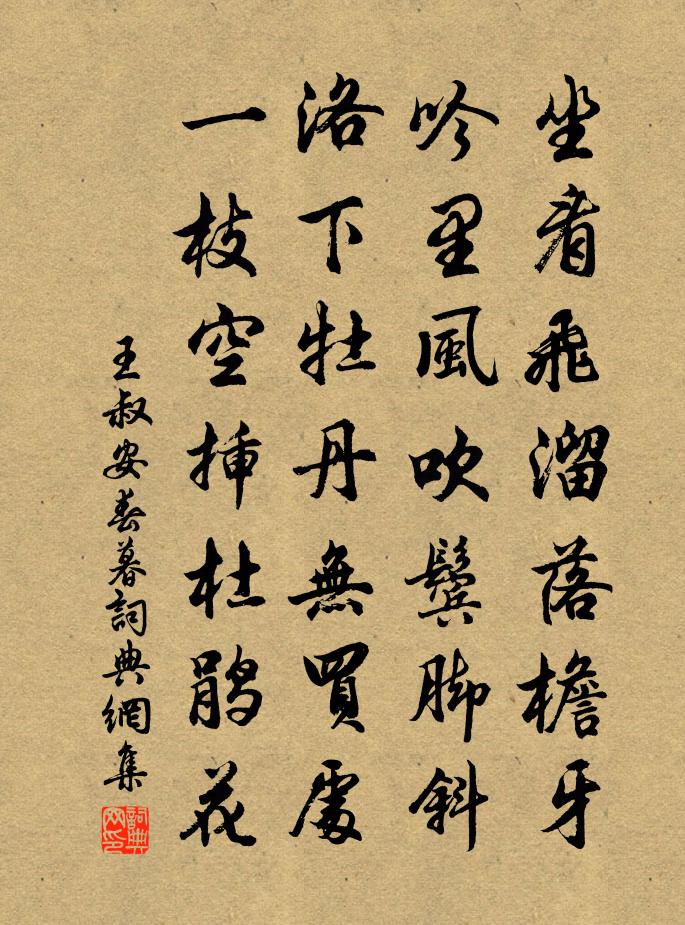 坐看飛溜落檐牙
吟里風吹鬢脚斜
洛下牡丹無買處
一枝空挿杜鹃花
王叔安春暮詞典網集
詞典网印